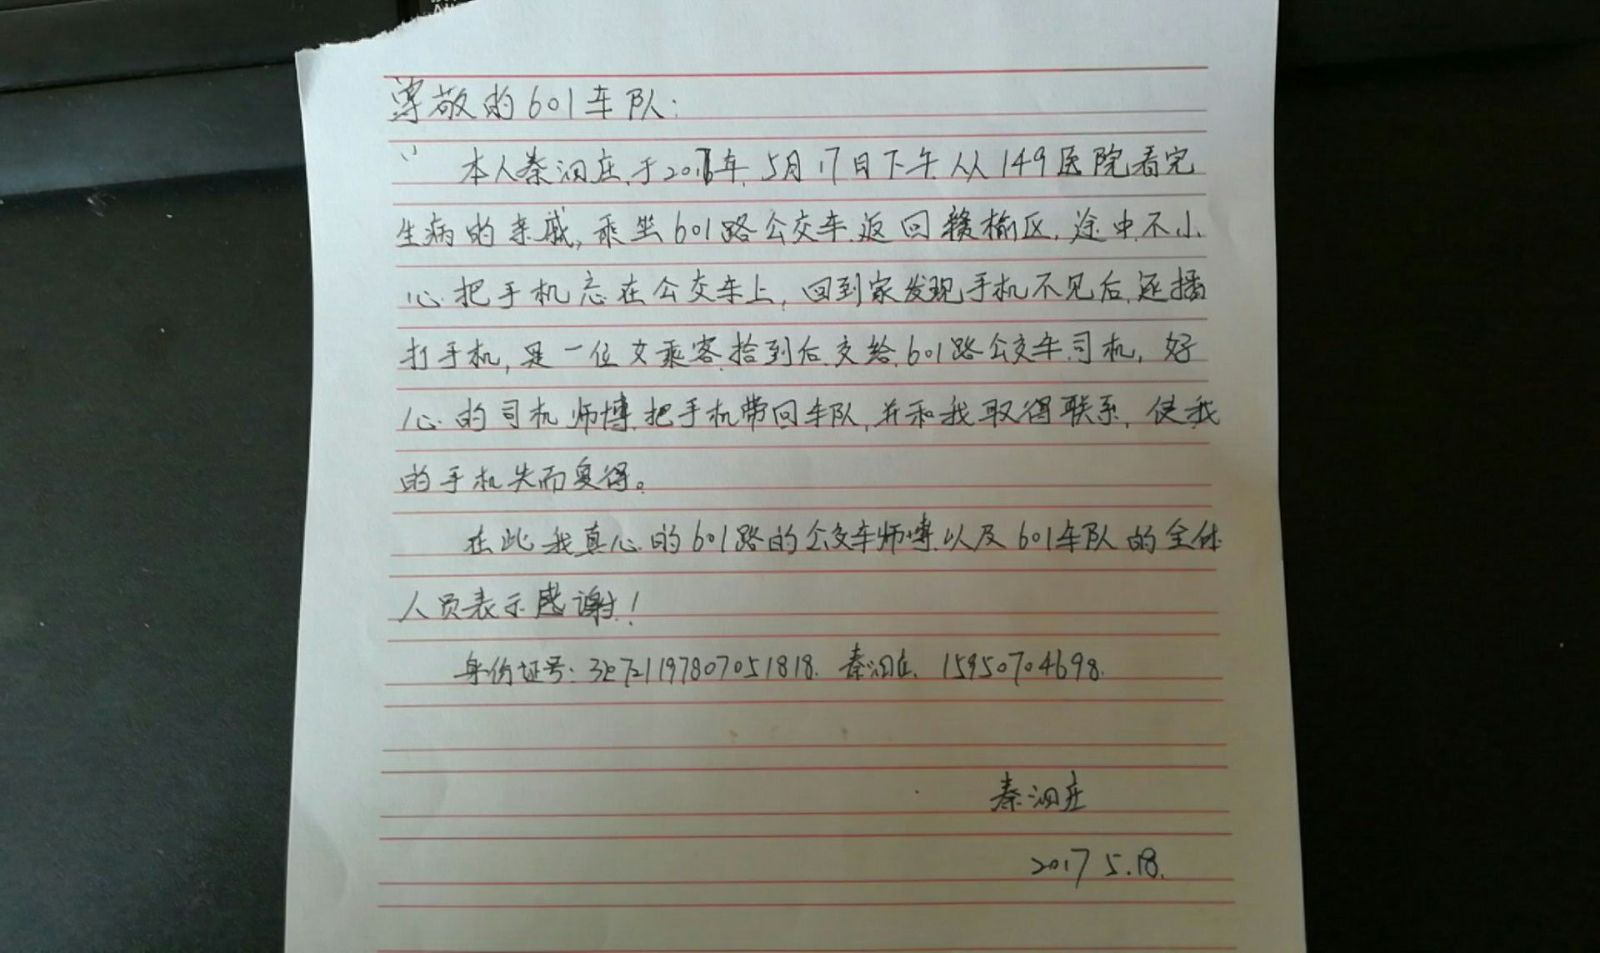 尊敬的601车队:
本人秦润庄,于2017年5月17日下午从149医院看完
生病的亲戚,乘坐601路公交车返回赣榆区,途中不小
心把手机忘在公交车上,回到家发现手机不见后,逐播
打手机,是一位女乘客拾到后交给601路公交车司机,好
心的司机师博把手机带回车队,并和我取得联系,使我
的手机失而复得。
在此我真心的601路的公交车师博以及601车队的全体
人员表示感谢!
身份证号:320721197807051818. 秦润庄. 15950704698.
秦润庄
2017 5.18.